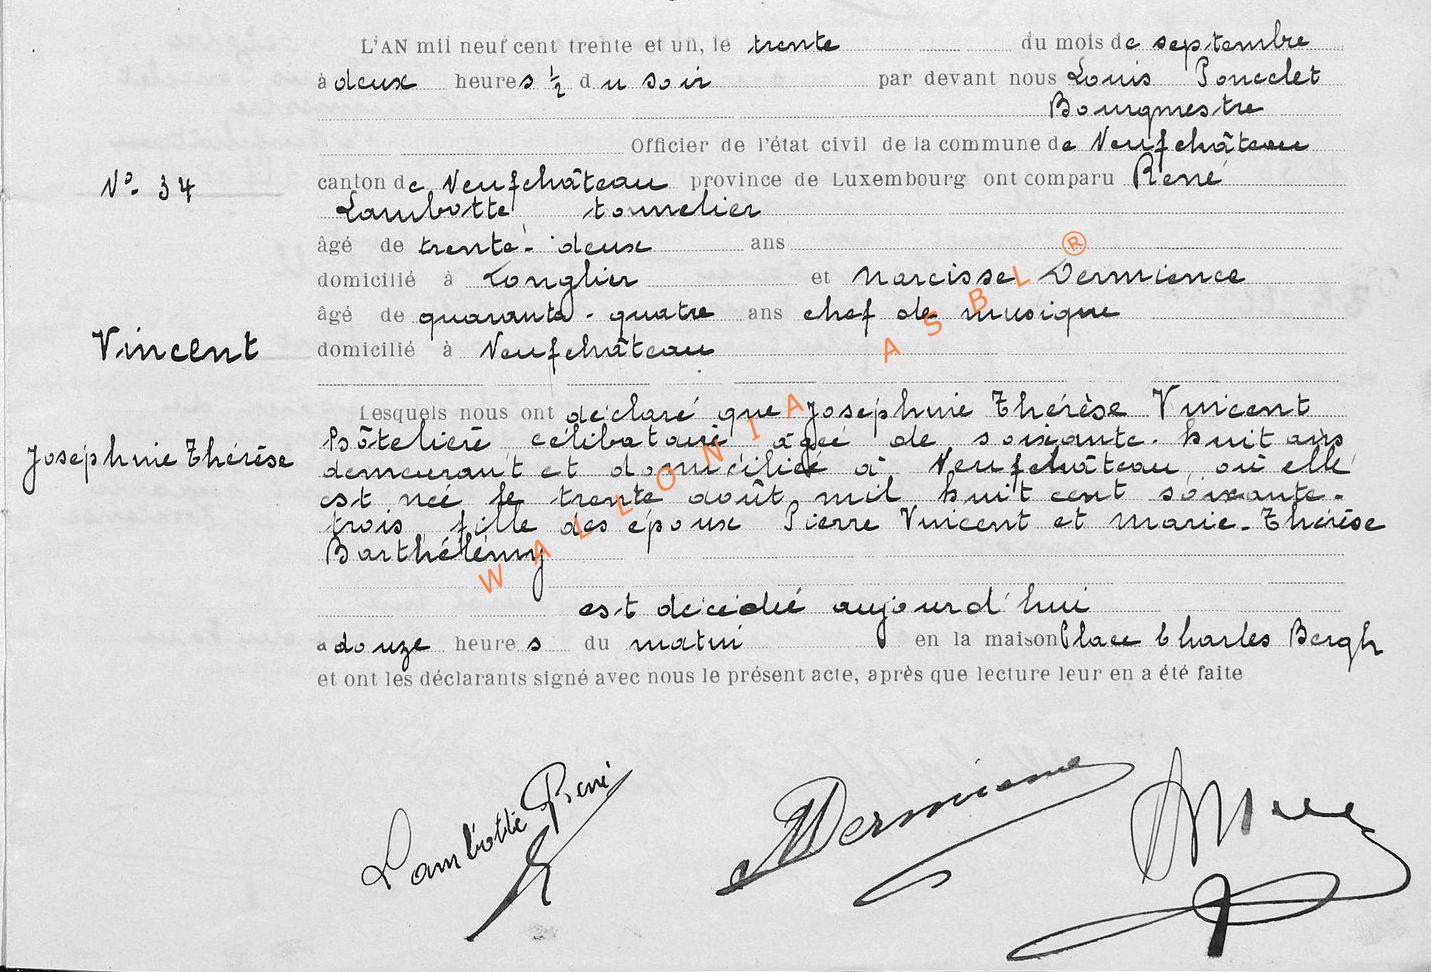 L'AN mil neuf cent trente et un, le trente du mois de septembre
à deux heures ½ du soir par devant nous Louis Poncelet
Bourgmestre
Officier de l'état civil de la commune de Neufchâteau
N° 34
canton de Neufchâteau province de Luxembourg ont comparu René
Lambotte tonnelier
âgé de trente-deux ans
domicilié à Longlier et Narcisse Dermience
âgé de quarante-quatre ans chef de musique
Vincent
domicilié à Neufchâteau
Lesquels nous ont déclaré que Joséphine Thérèse Vincent
Joséphine Thérèse
hôtelière célibataire âgée de soixante-huit ans
demeurant et domiciliée à Neufchâteau où elle
est née le trente août mil huit cent soixante-
trois, fille des époux Pierre Vincent et Marie-Thérèse
Barthélémy
est décédée aujourd'hui
a douze heures du matin en la maison Place Charles Bergh
et ont les déclarants signé avec nous le présent acte, après que lecture leur en a été faite
Lambotte René
Dermience
WALLONIA ASBL ®